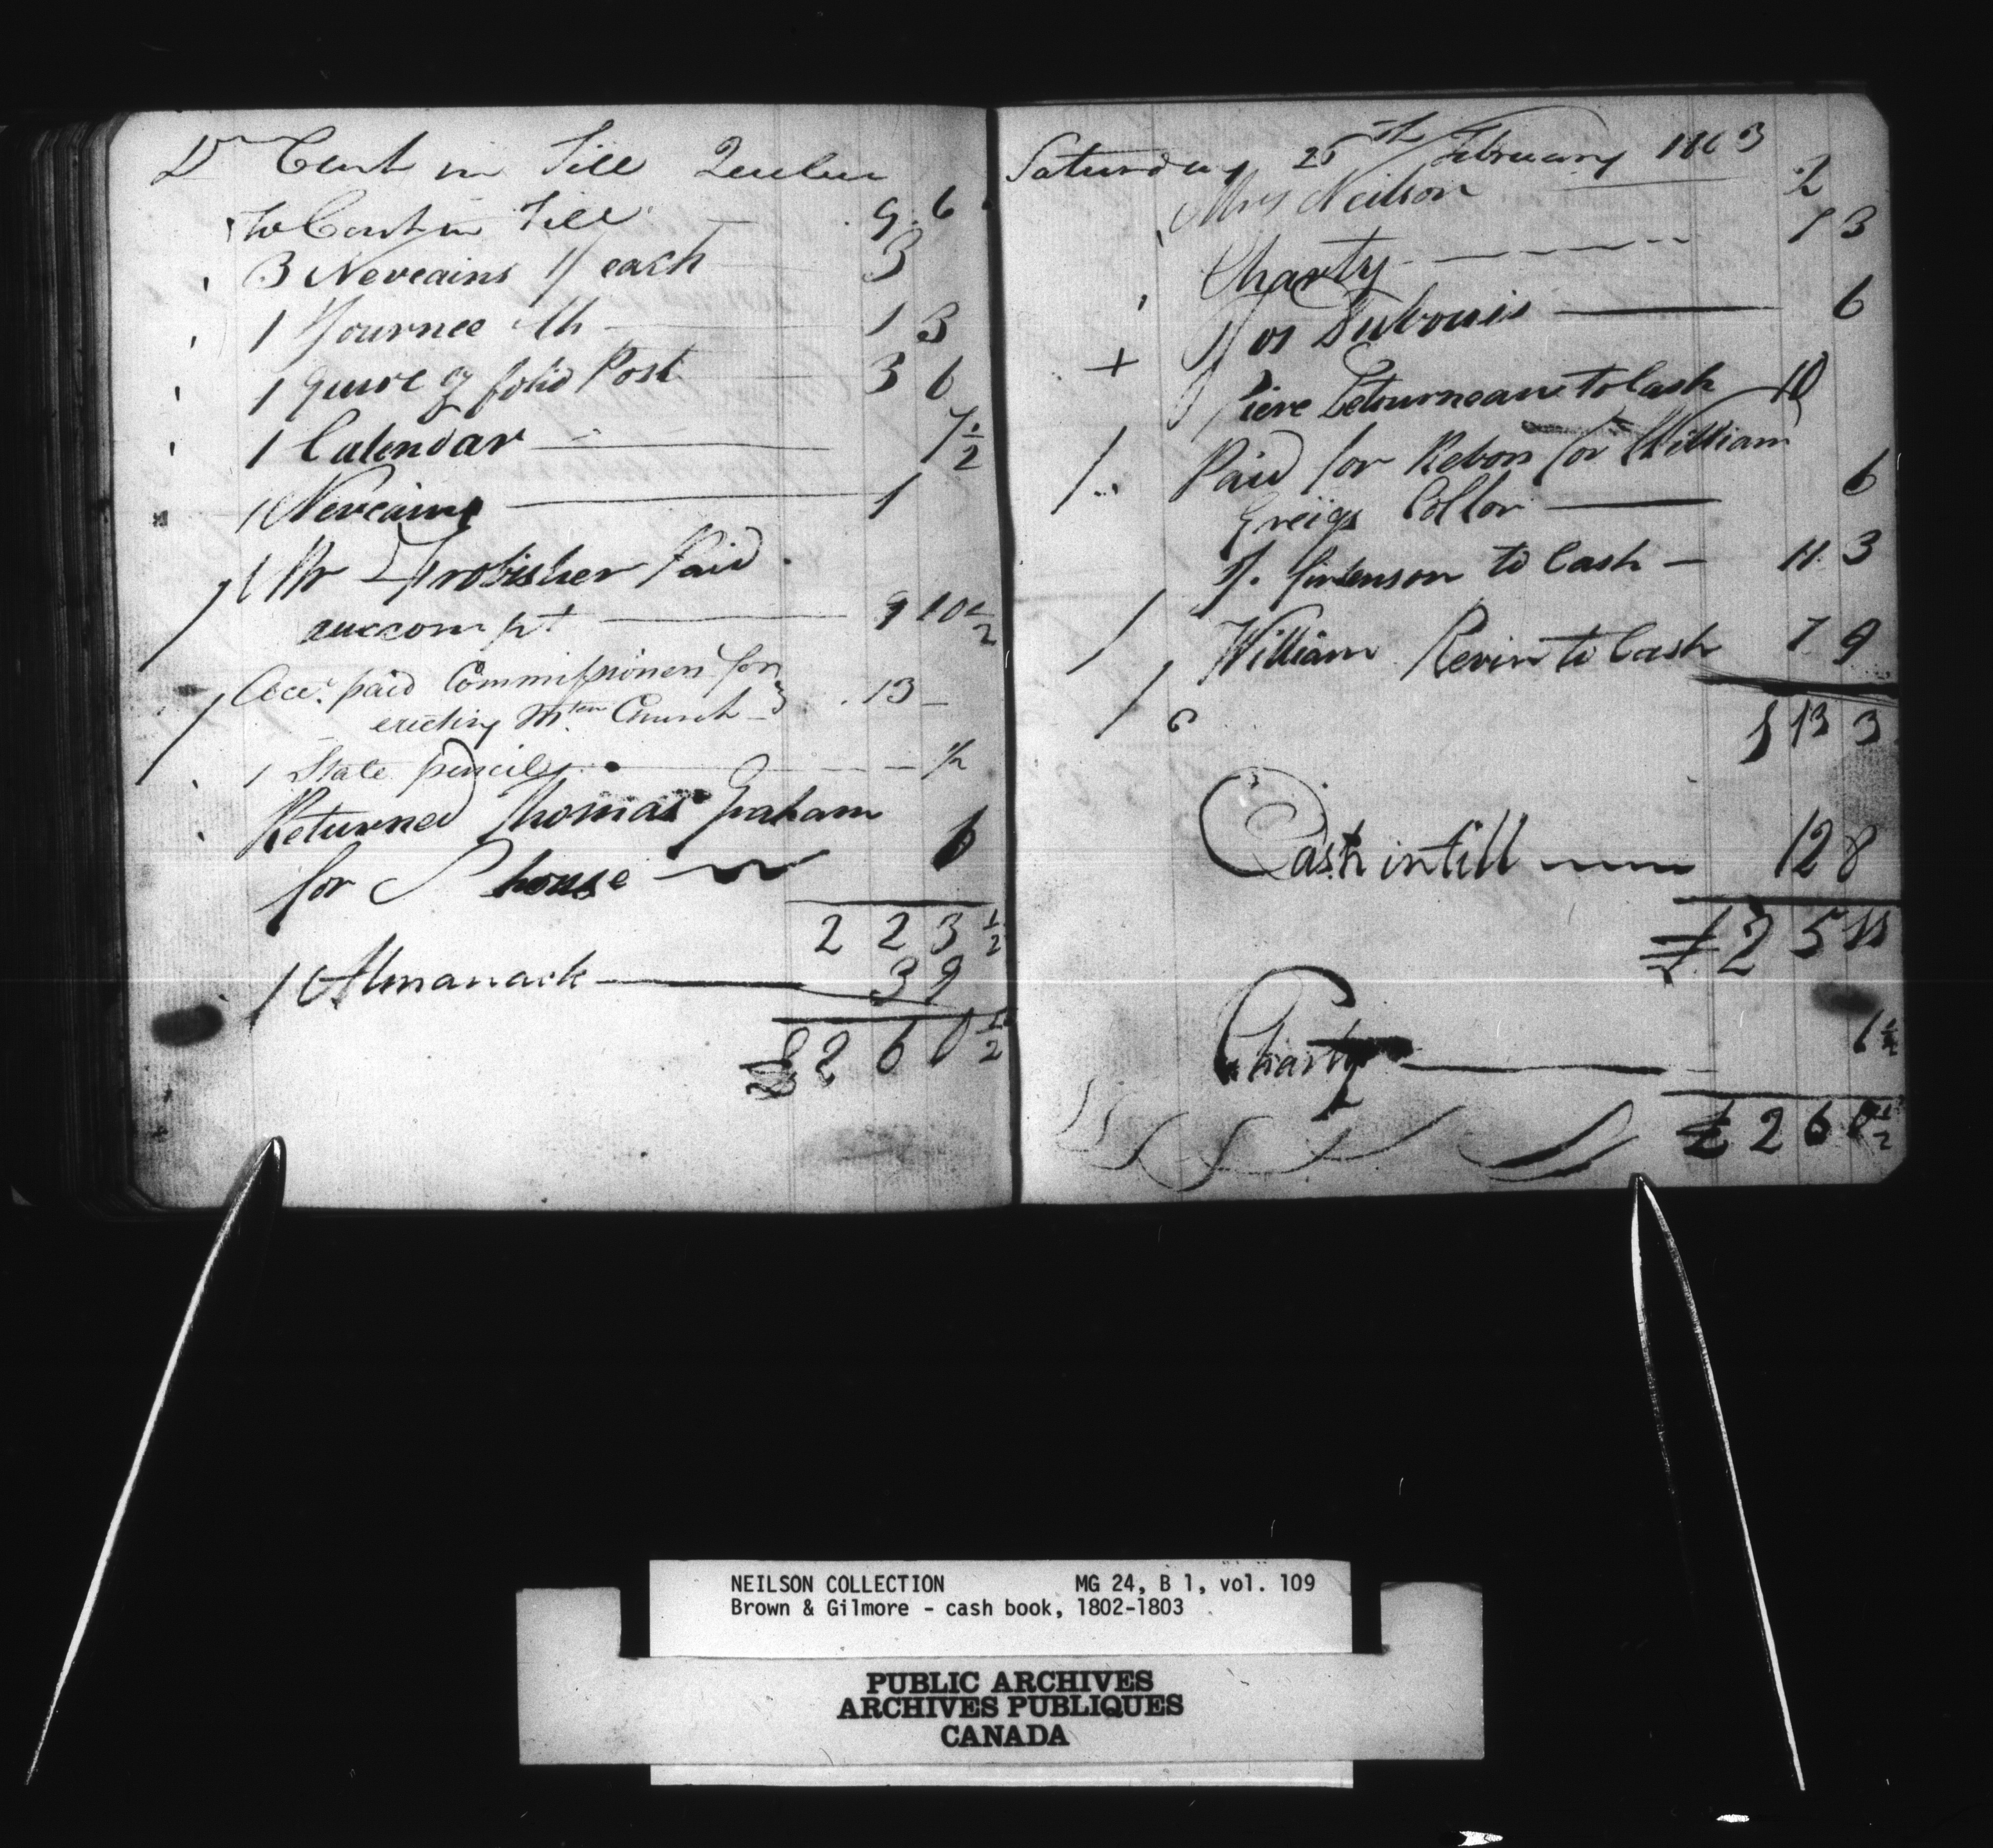 Dr Cash in Till Quebec
To Cash in Till 9. 6
3 Neveains 1/ each 3
1 Journee 1 3
1 quire of folio Post 3 6
1 Calendar 7 1/2
1 Neveaine 1
1 Mr Frobisher Paid
auccompt 9 10 1/2
Acct. paid Commissioners for
erecting Church 13 -
1 Slate pencil 1/2
Returned Thomas Graham
for house 6
2 2 3 1/2
1 Almanack 3 9
£ 2 6 0 1/2
Saturday 25th February 1803
Mrs Neilson 1/2
Charty 1 3
Jos Dubouis 6
+ Piere Letourneau to Cash 10
Paid for Rebon for William
Greigs Collor 6
J. to Cash - 11. 3
William Revin to Cash 7 9
1 13 3
Cash in till 12 8
£ 2 5 11
Charty 1 1/2
£ 2 6 0 1/2
NEILSON COLLECTION MG 24, B 1, vol. 109
Brown & Gilmore - cash book, 1802-1803
PUBLIC ARCHIVES
ARCHIVES PUBLIQUES
CANADA